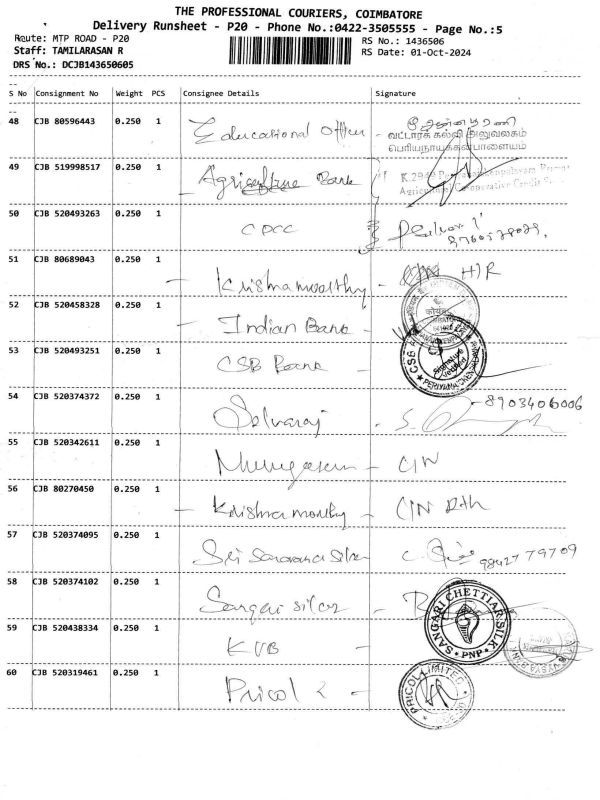 THE PROFESSIONAL COURIERS, COIMBATORE
Delivery Runsheet - P20 - Phone No.:0422-3505555 - Page No.:5
Route: MTP ROAD - P20
RS No.: 1436506
Staff: TAMILARASAN R
RS Date: 01-Oct-2024
DRS No.: DCJB143650605
S No Consignment No Weight PCS Consignee Details Signature
48 CJB 80596443 0.250 1 Educational Officer -
வட்டாரக் கல்வி அலுவலகம்
பெரியநாயக்கன்பாளையம்
49 CJB 519998517 0.250 1 - Agriculture Bank
Agricultural Co-operative Credit
50 CJB 520493263 0.250 1 CDCC
51 CJB 80689043 0.250 1 - Krishnamoorthy - H/R
52 CJB 520458328 0.250 1 - Indian Bank -
53 CJB 520493251 0.250 1 CSB Bank -
CSB
Signature Verified
54 CJB 520374372 0.250 1 Selvaraj - 8903406006
55 CJB 520342611 0.250 1 Murugasan - C/N
56 CJB 80270450 0.250 1 - Krishnamoorthy - C/N
57 CJB 520374095 0.250 1 Sri Saravana Silks 9842779709
58 CJB 520374102 0.250 1 Sangari silks -
SANGARI CHETTIAR SILK
PNP
59 CJB 520438334 0.250 1 KVB -
60 CJB 520319461 0.250 1 Pricol -
PRICOL LIMITED